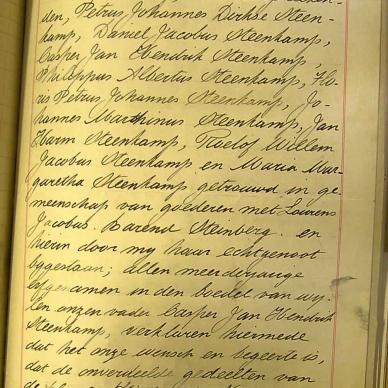 den, Petrus Johannes Dirkse Steen-
kamp, Daniel Jacobus Steenkamp,
Casper Jan Hendrik Steenkamp,
Philippus Albertus Steenkamp, Flo-
ris Petrus Johannes Steenkamp, Jo-
hannes Marthinus Steenkamp, Jan
Harm Steenkamp, Roelof Willem
Jacobus Steenkamp en Maria Mar-
garetha Steenkamp getrouwd in ge-
meenschap van goederen met Lourens
Jacobus Barend Steinberg en
hierin door my haar echtgenoot
bygestaan; allen meerderjarige
erfgenamen in den boedel van wy-
len onzen vader Casper Jan Hendrik
Steenkamp, verklaren hiermede
dat het onze wensch en begeerte is,
dat de onverdeelde gedeelten van